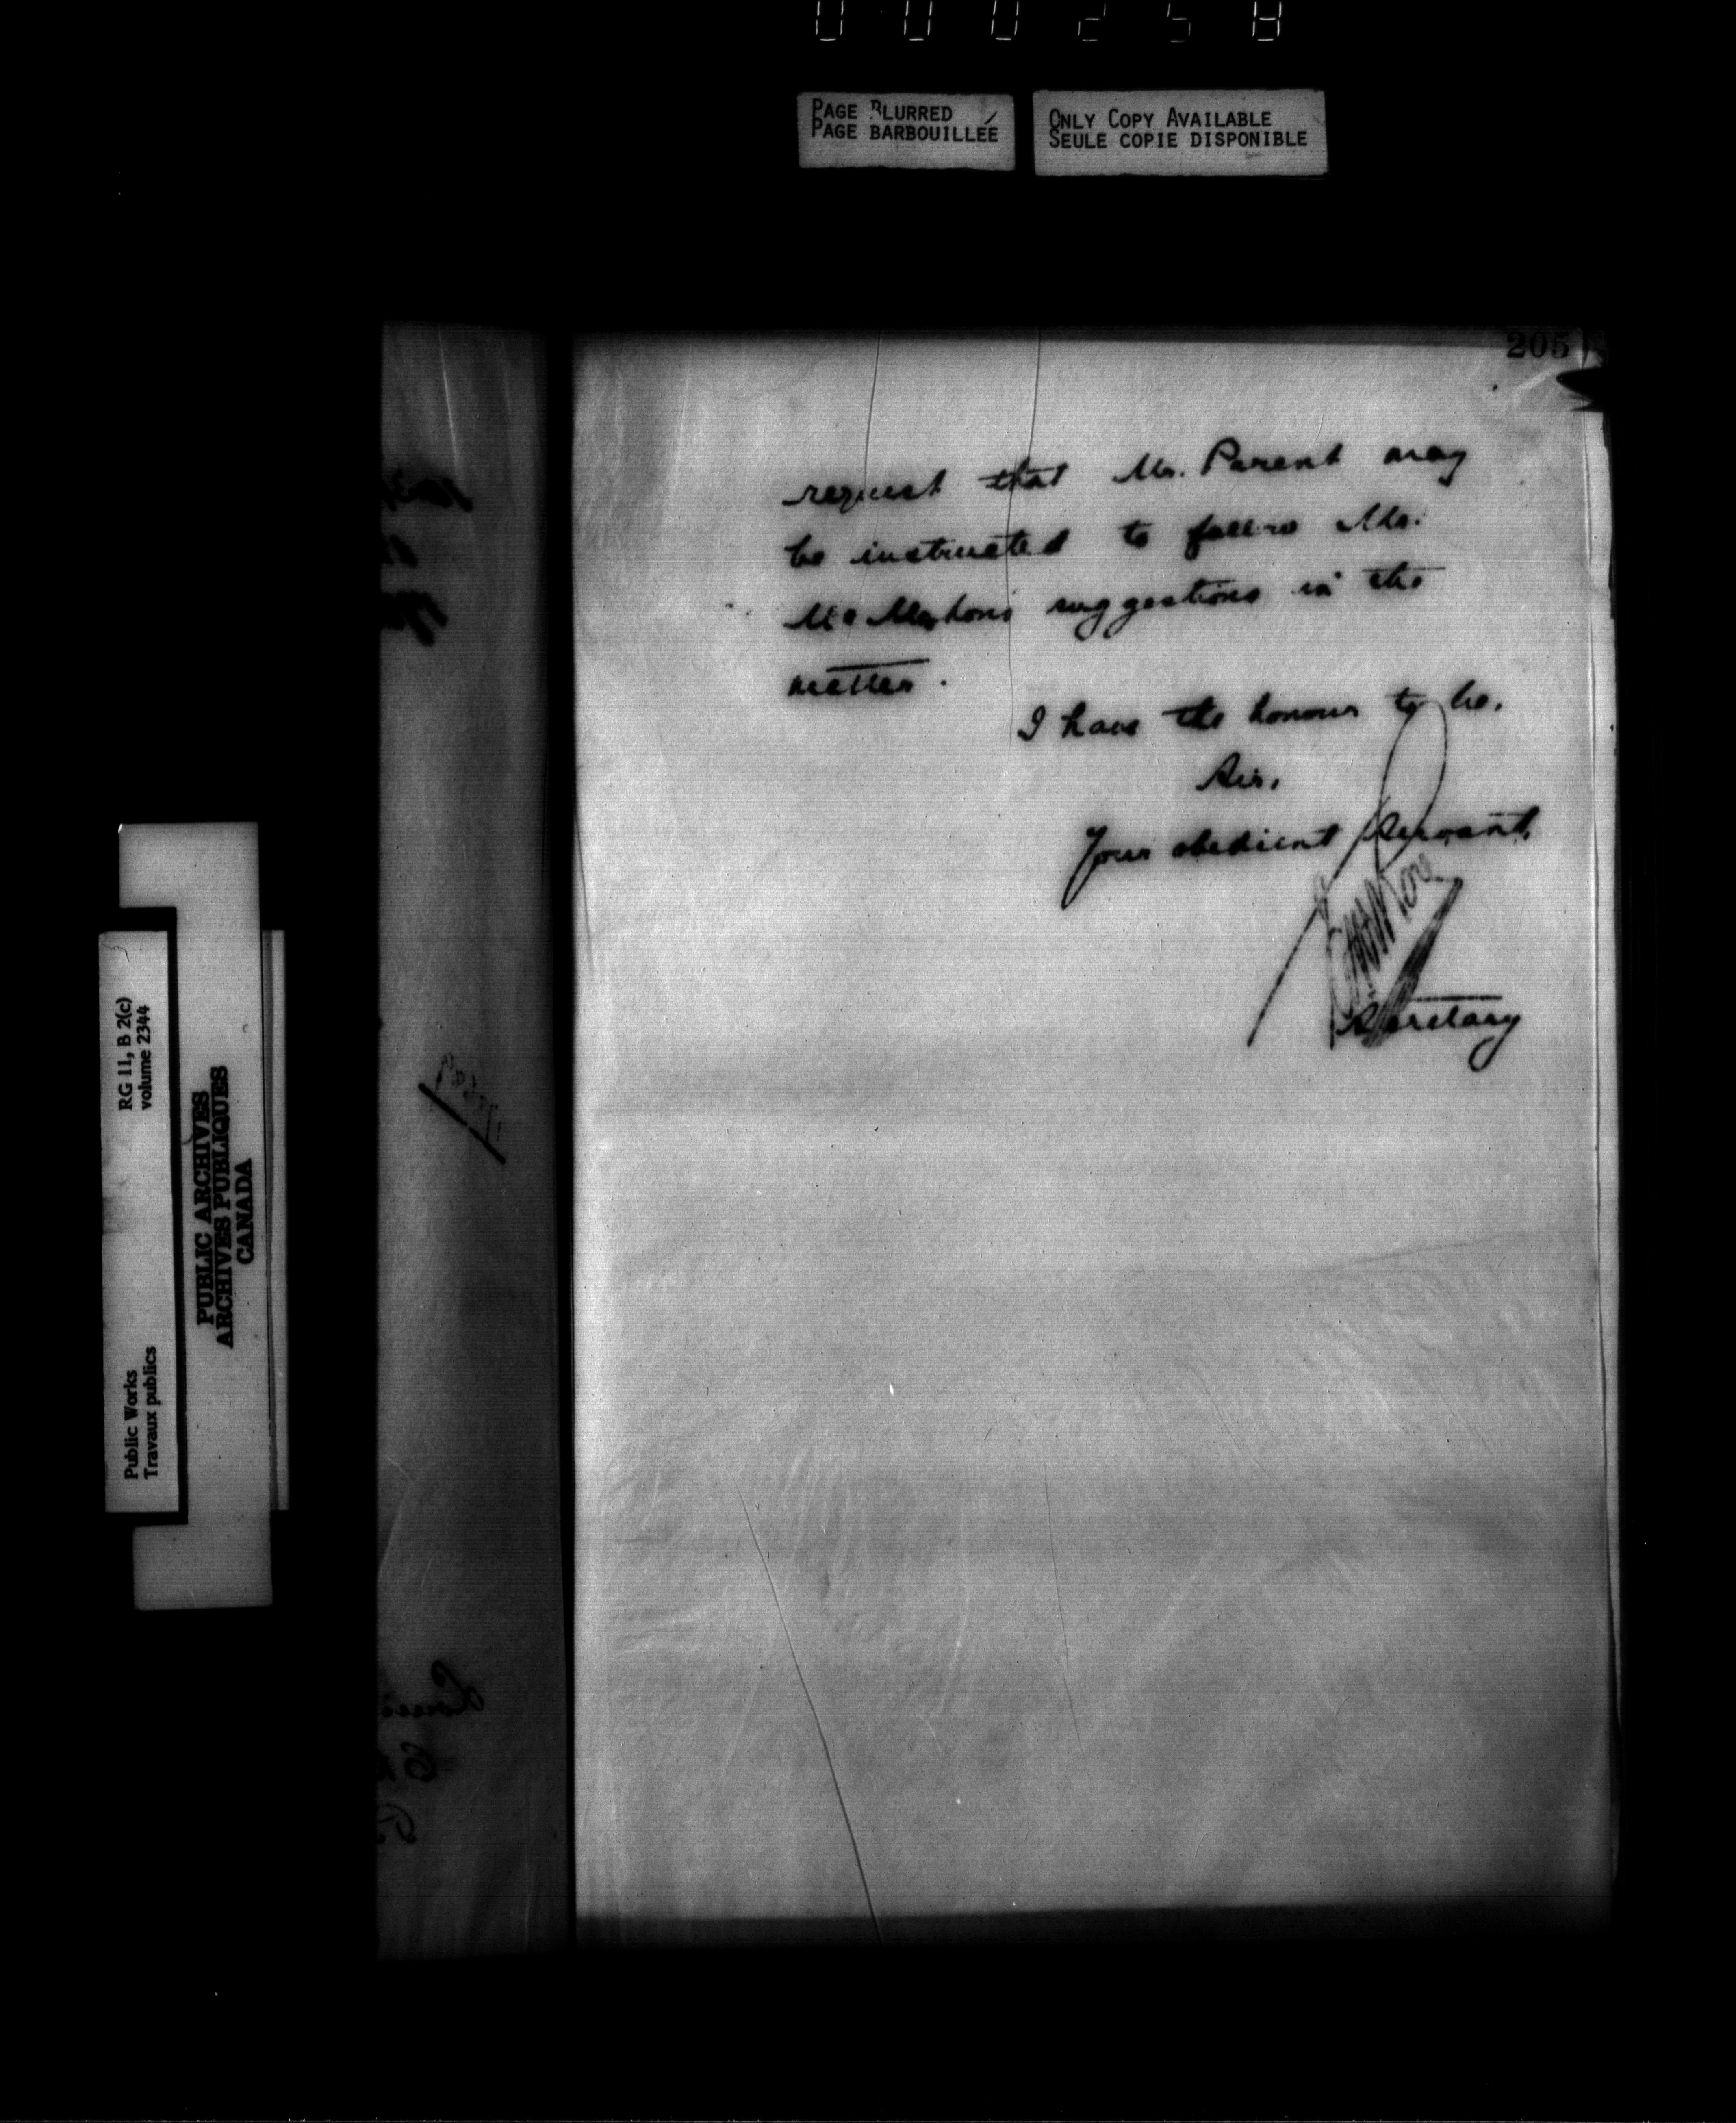 000258
PAGE BLURRED
PAGE BARBOUILLÉE
ONLY COPY AVAILABLE
SEULE COPIE DISPONIBLE
205
request that Mr. Parent may
be instructed to follow Mr.
McMahon's suggestions in the
matter.
I have the honour to be,
Sir,
Your obedient Servant,
Secretary
RG 11, B 2(c)
volume 2344
Public Works
Travaux publics
PUBLIC ARCHIVES
ARCHIVES PUBLIQUES
CANADA